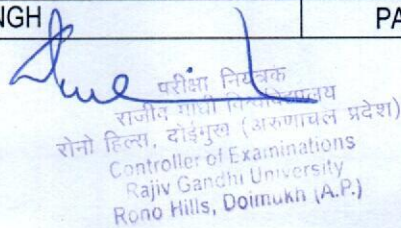 NGH PA
परीक्षा नियंत्रक
राजीव गांधी विश्वविद्यालय
रोनो हिल्स, दोईमुख (अरुणाचल प्रदेश)
Controller of Examinations
Rajiv Gandhi University
Rono Hills, Doimukh (A.P.)